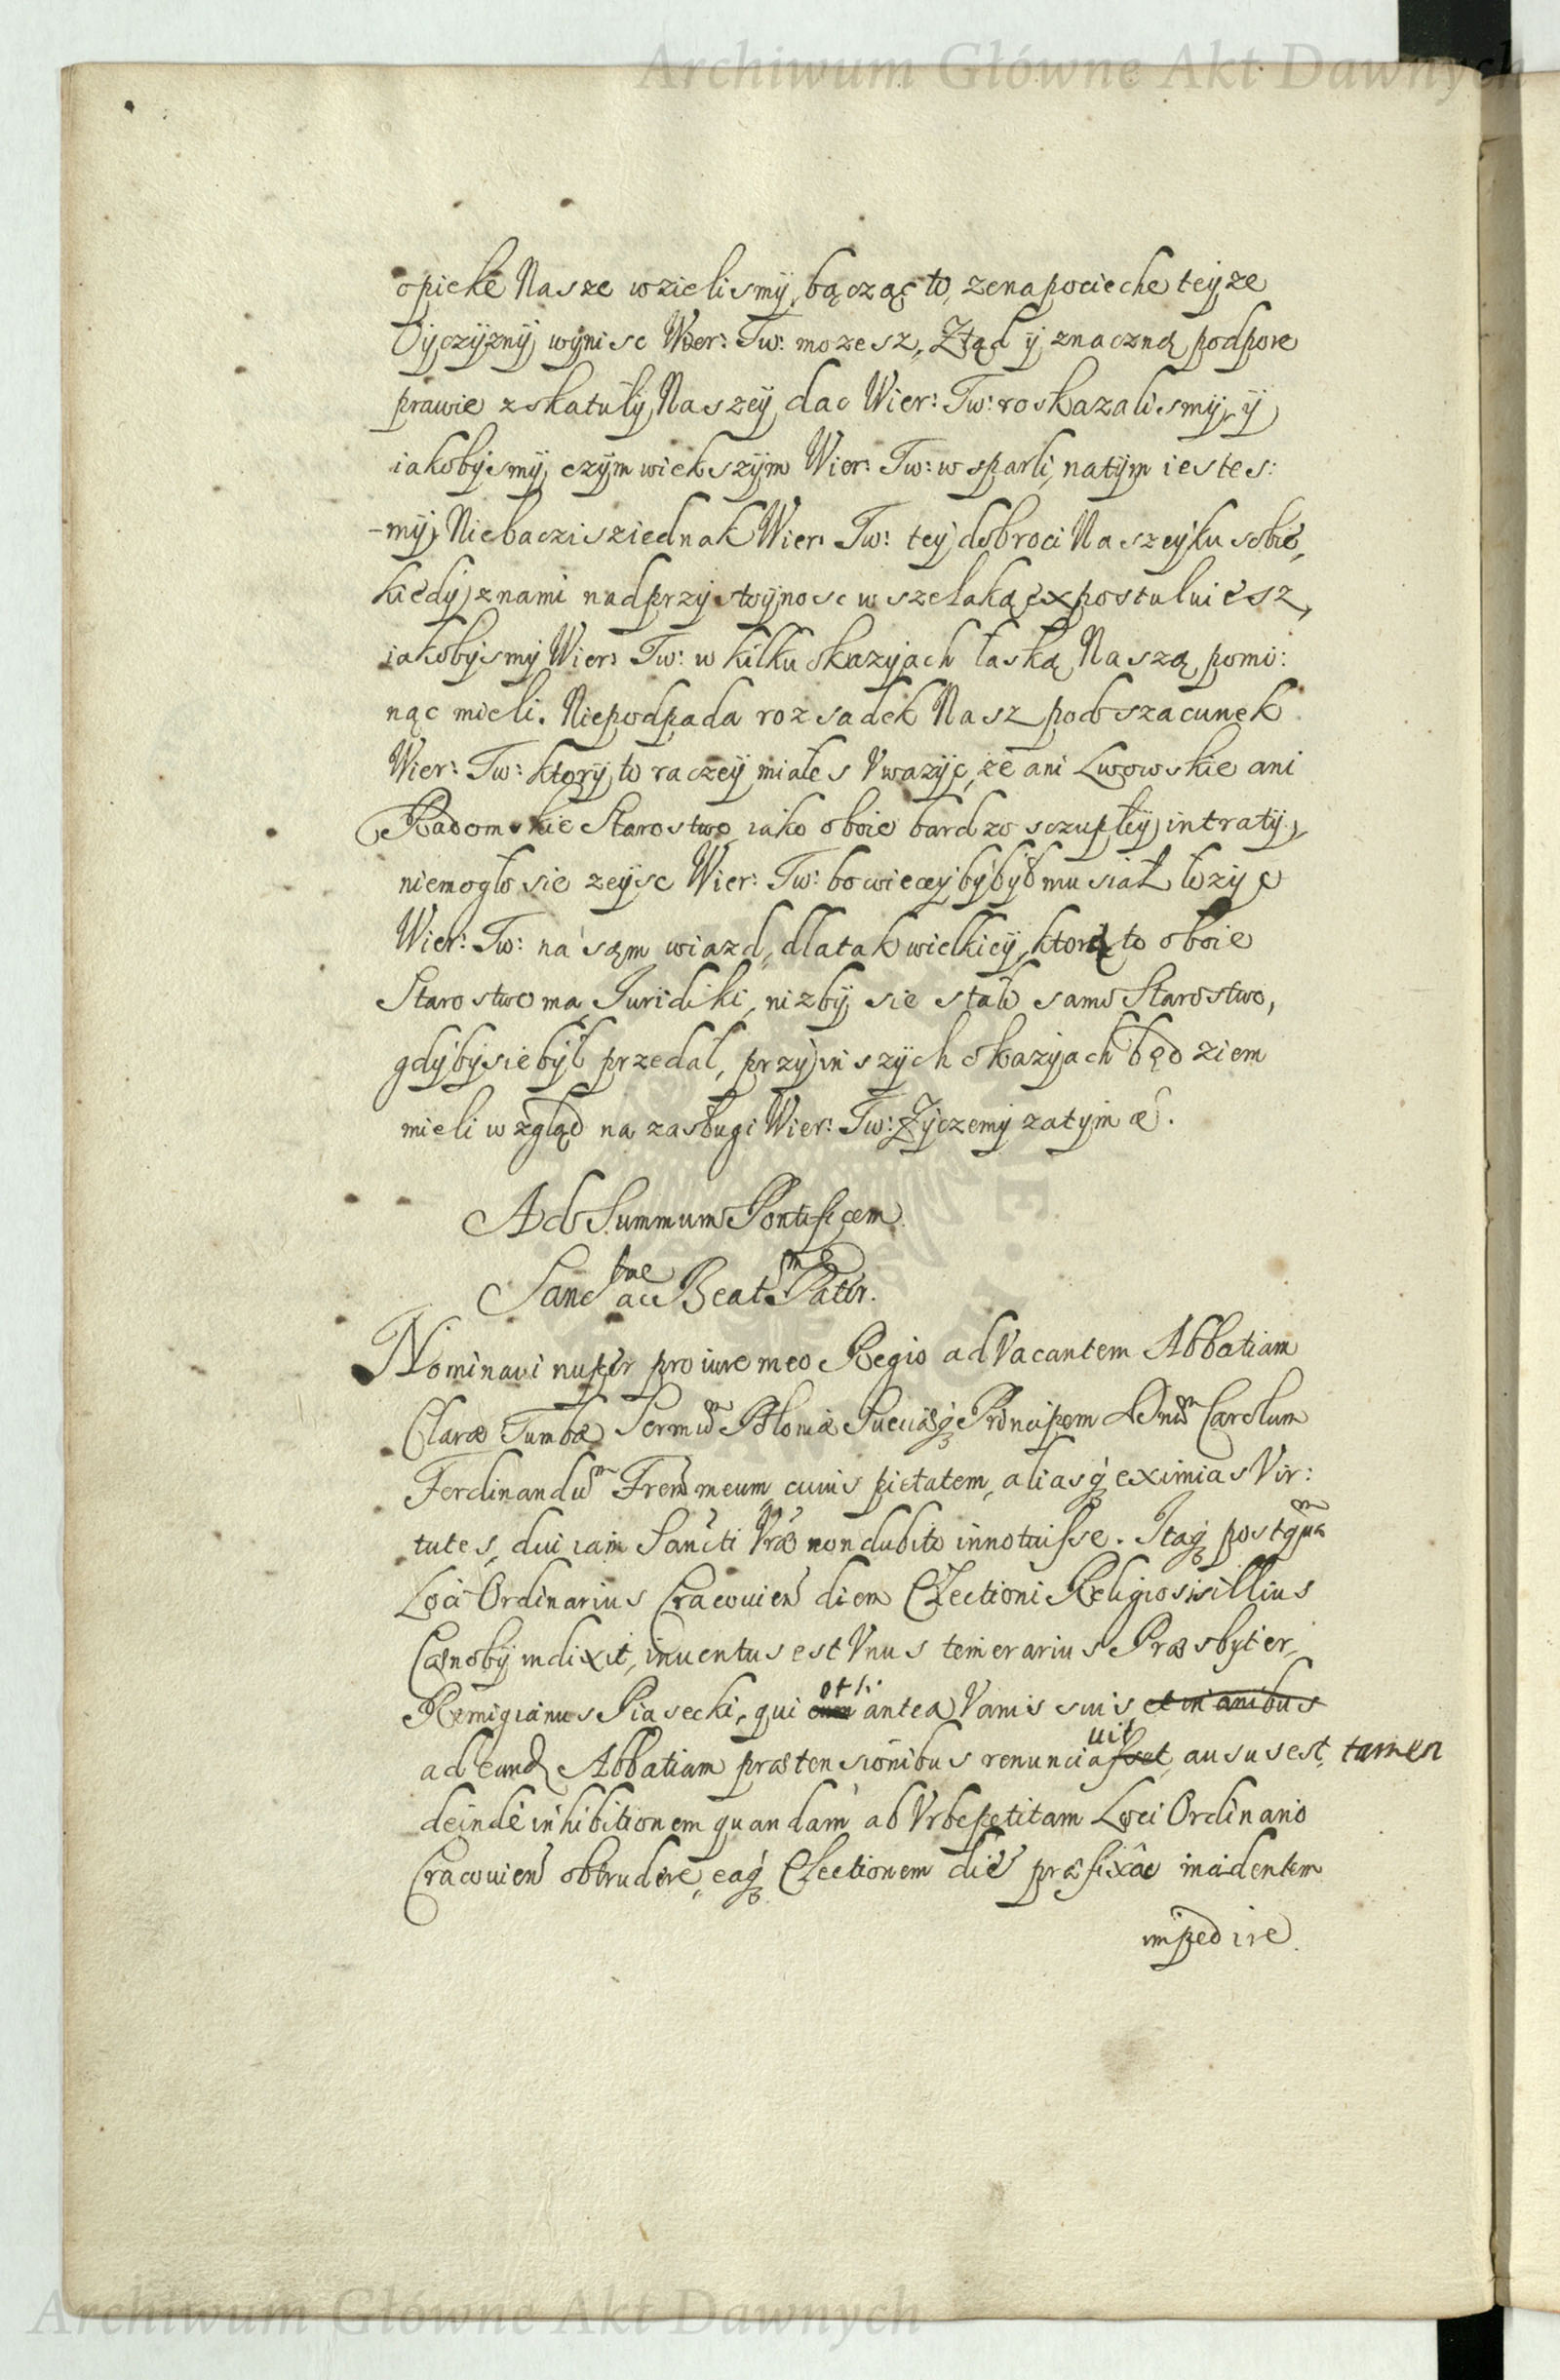 Archiwum Główne Akt Dawnych
opiekę Nasze wzielismÿ, bącząc to, ze na pocieche teÿze
Oÿczÿznÿ wÿnisc Wier: Tw: mozesz, Ztąd ÿ znaczną podpore
prawie z skatułÿ Naszeÿ dac Wier: Tw: roskazalismÿ, ÿ
iakobÿsmÿ czÿm wiekszÿm Wier: Tw: wsparli, natÿm iestes:
-mÿ, Niebaczisz iednak Wier: Tw: teÿ dobroci Naszeÿ ku sobie,
kiedÿ znami nad przÿstoÿnosc wszelaką expostuluiesz,
iakobÿsmÿ Wier: Tw: w kilku okazÿjach łaską Naszą pomi:
nąc mieli. Niepodpada rozsadek Nasz pod szacunek
Wier: Tw: ktorÿ to raczeÿ miałes Vwazÿc, ze ani Lwowskie ani
Radomskie Starostwo iako oboie bardzo sczupłeÿ intratÿ,
niemogło sie zeÿsc Wier: Tw: bo wieceÿ bÿ bÿł musiał łozÿc
Wier: Tw: na sąm wiazd, dla tak wielkieÿ, ktorą to oboie
Starostwo ma Iuridiki, nizbÿ sie stało samo Starostwo,
gdÿbÿ sie bÿł przedał, przÿ inszÿch okazÿjach będziem
mieli wzgląd na zasługi Wier: Tw: Zÿczemÿ zatÿm &.
Ad Summum Pontificem
Sanctme ac Beatme Pater.
Nominavi nuper pro iure meo Regio ad Vacantem Abbatiam
Claræ Tumbæ Sermum Poloniæ Sueciæq Principem Dnum Carolum
Ferdinandum Frem meum, cuius pietatem, aliasq eximias Vir:
tutes, diu iam Sancti Vræ non dubito innotuisse. Itaq postqua
Loci Ordinarius Cracovien diem Electioni Religiosis illius
Cænobÿ indixit, inventus est Vnus temerarius Præsbyter,
Remigianus Piasecki, qui etsi antea Vanis suis et inanibus
ad eand Abbatiam prætensionibus renunciavit, ausus est, tamen
deinde inhibitionem quandam ab Vrbe petitam Loci Ordinario
Cracovien obtrudere, eaq Electionem die præfixâ incidentem
impedire
Archiwum Główne Akt Dawnych